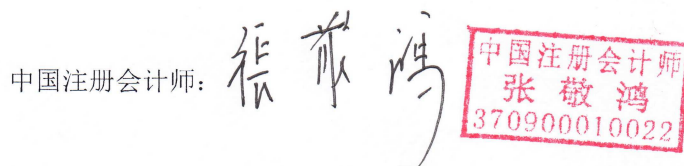 中国注册会计师：張敬鴻
中国注册会计师
张敬鸿
370900010022